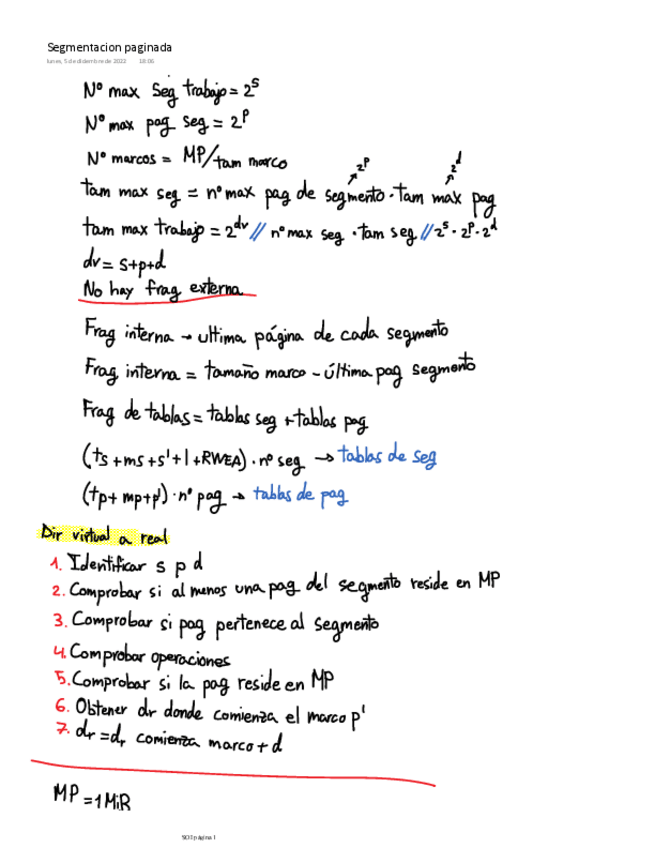 Segmentacion paginada
lunes, 5 de diciembre de 2022 18:06
Nº max Seg trabajo = 2^s
Nº max pag seg = 2^p
Nº marcos = MP/tam marco
2^p 2^d
tam max seg = nº max pag de segmento · tam max pag
tam max trabajo = 2^dv // nº max seg · tam seg // 2^s · 2^p · 2^d
dv = s+p+d
No hay frag externa
Frag interna → ultima página de cada segmento
Frag interna = tamaño marco - última pag segmento
Frag de tablas = tablas seg + tablas pag
(ts + ms + s' + l + RWEA) · nº seg → tablas de seg
(tp + mp + p') · nº pag → tablas de pag
Dir virtual a real
1. Identificar s p d
2. Comprobar si al menos una pag del segmento reside en MP
3. Comprobar si pag pertenece al segmento
4. Comprobar operaciones
5. Comprobar si la pag reside en MP
6. Obtener dr donde comienza el marco p'
7. dr = dr comienza marco + d
MP = 1 MiB
página 1